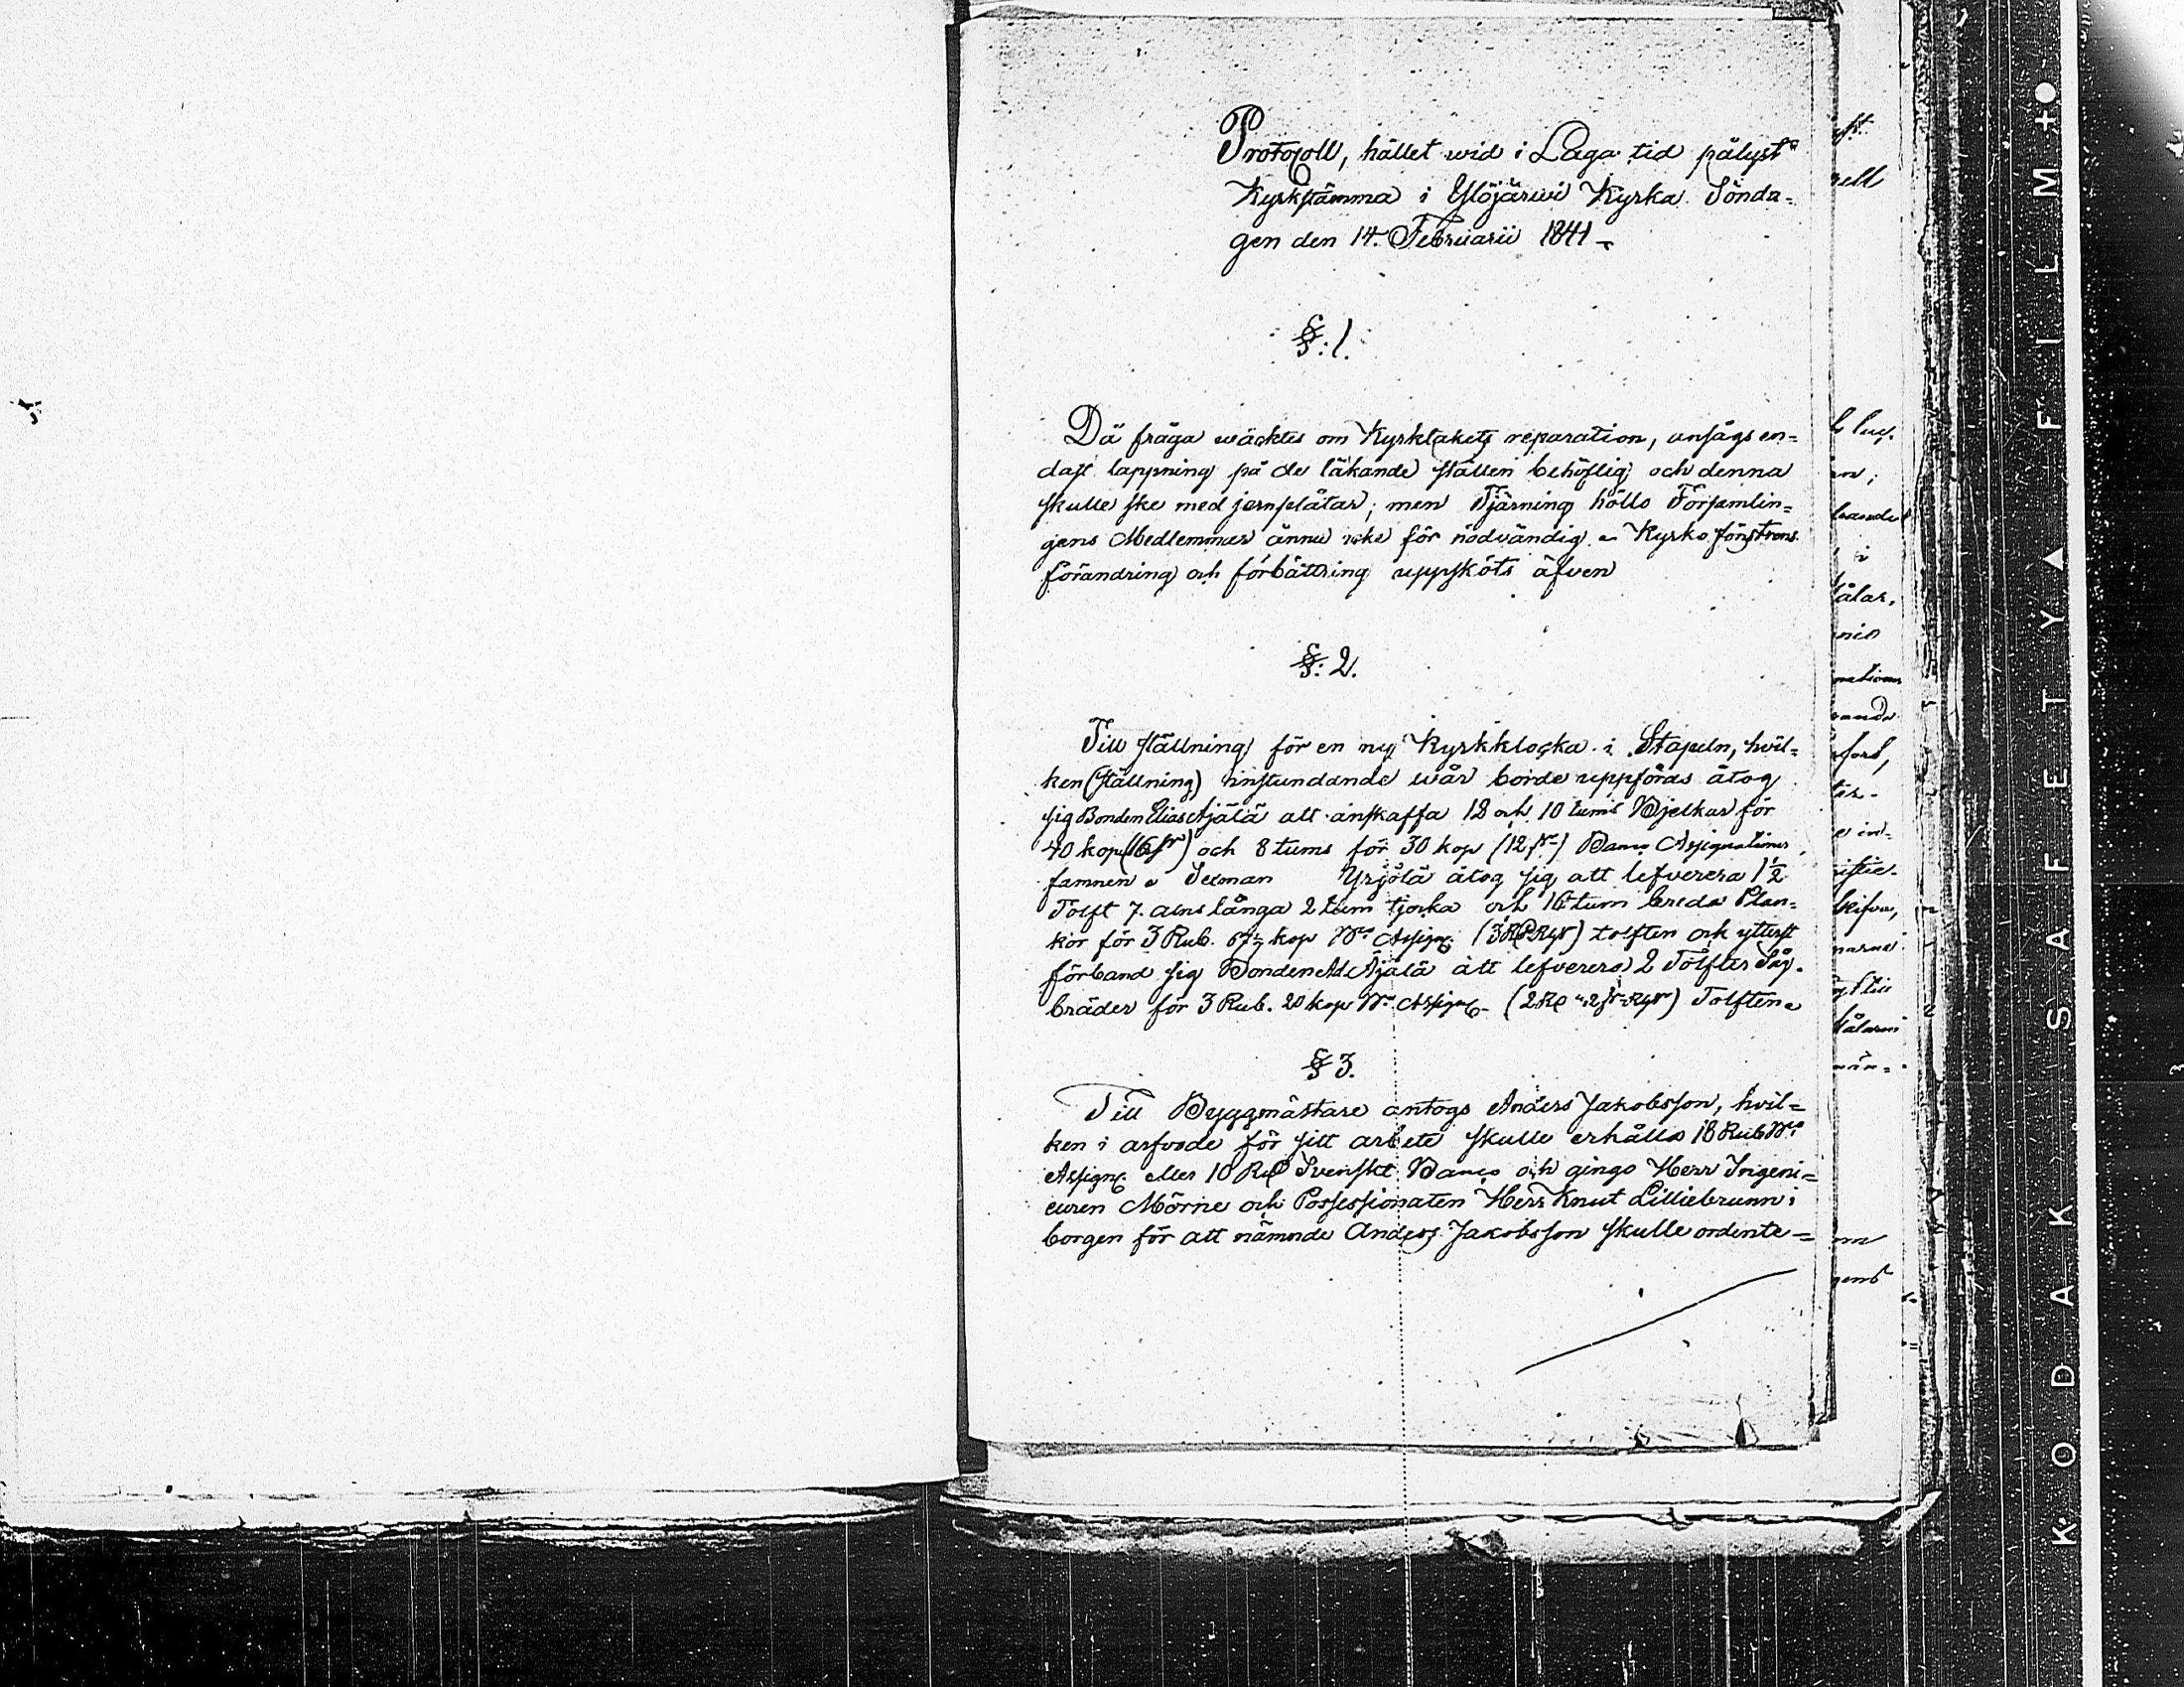 Protocoll, hållet wid i Laga tid pålyst
Kyrkstämma i Ylöjärwi Kyrka Sönda=
gen den 14. Februarii 1841
§: 1.
Då fråga wäcktes om Kyrktakets reparation, ansågs en=
dast lappning på de läkande ställen behöflig och denna
skulle ske med jernplåtar; men Tjärning hölls Församlin=
gens Medlemmar ännu icke för nödvändig. Kyrko fönstrens
förändring och förbättring uppsköts äfven
§: 2.
Till ställning för en ny Kyrkklocka i Stapeln, hvil=
ken (ställning) instundande wår borde uppföras åtog
sig Bonden Elias Äjälä att anskaffa 12 och 10 tums Bjelkar för
40 kop (16 ) och 8 tums för 30 kop (12 ) Banco Assignationer
famnen Yrjölä åtog sig att lefverera 1½
Tolft 7. alns långa 2 tum tjocka och 16 tum breda Plan=
kor för 3 Rub. kop Assign. tolften och ytterst
förband sig Bonden Ad. Äjälä att lefverera 2 Tolfter Såg-
bräder för 3 Rub. 20 kop Assign. Tolften
§ 3.
Till Byggmästare antogs Anders Jakobsson, hvil=
ken i arfvode för sitt arbete skulle erhålla 18 Rub
Assign. eller 10 Svenskt Banco och gingo Herr Ingeni=
euren Mörne och Possessionaten Herr Knut Lilliebrunn i
borgen för att nämnde Anders Jakobsson skulle ordente=
KODAK SAFETY ▲ FILM